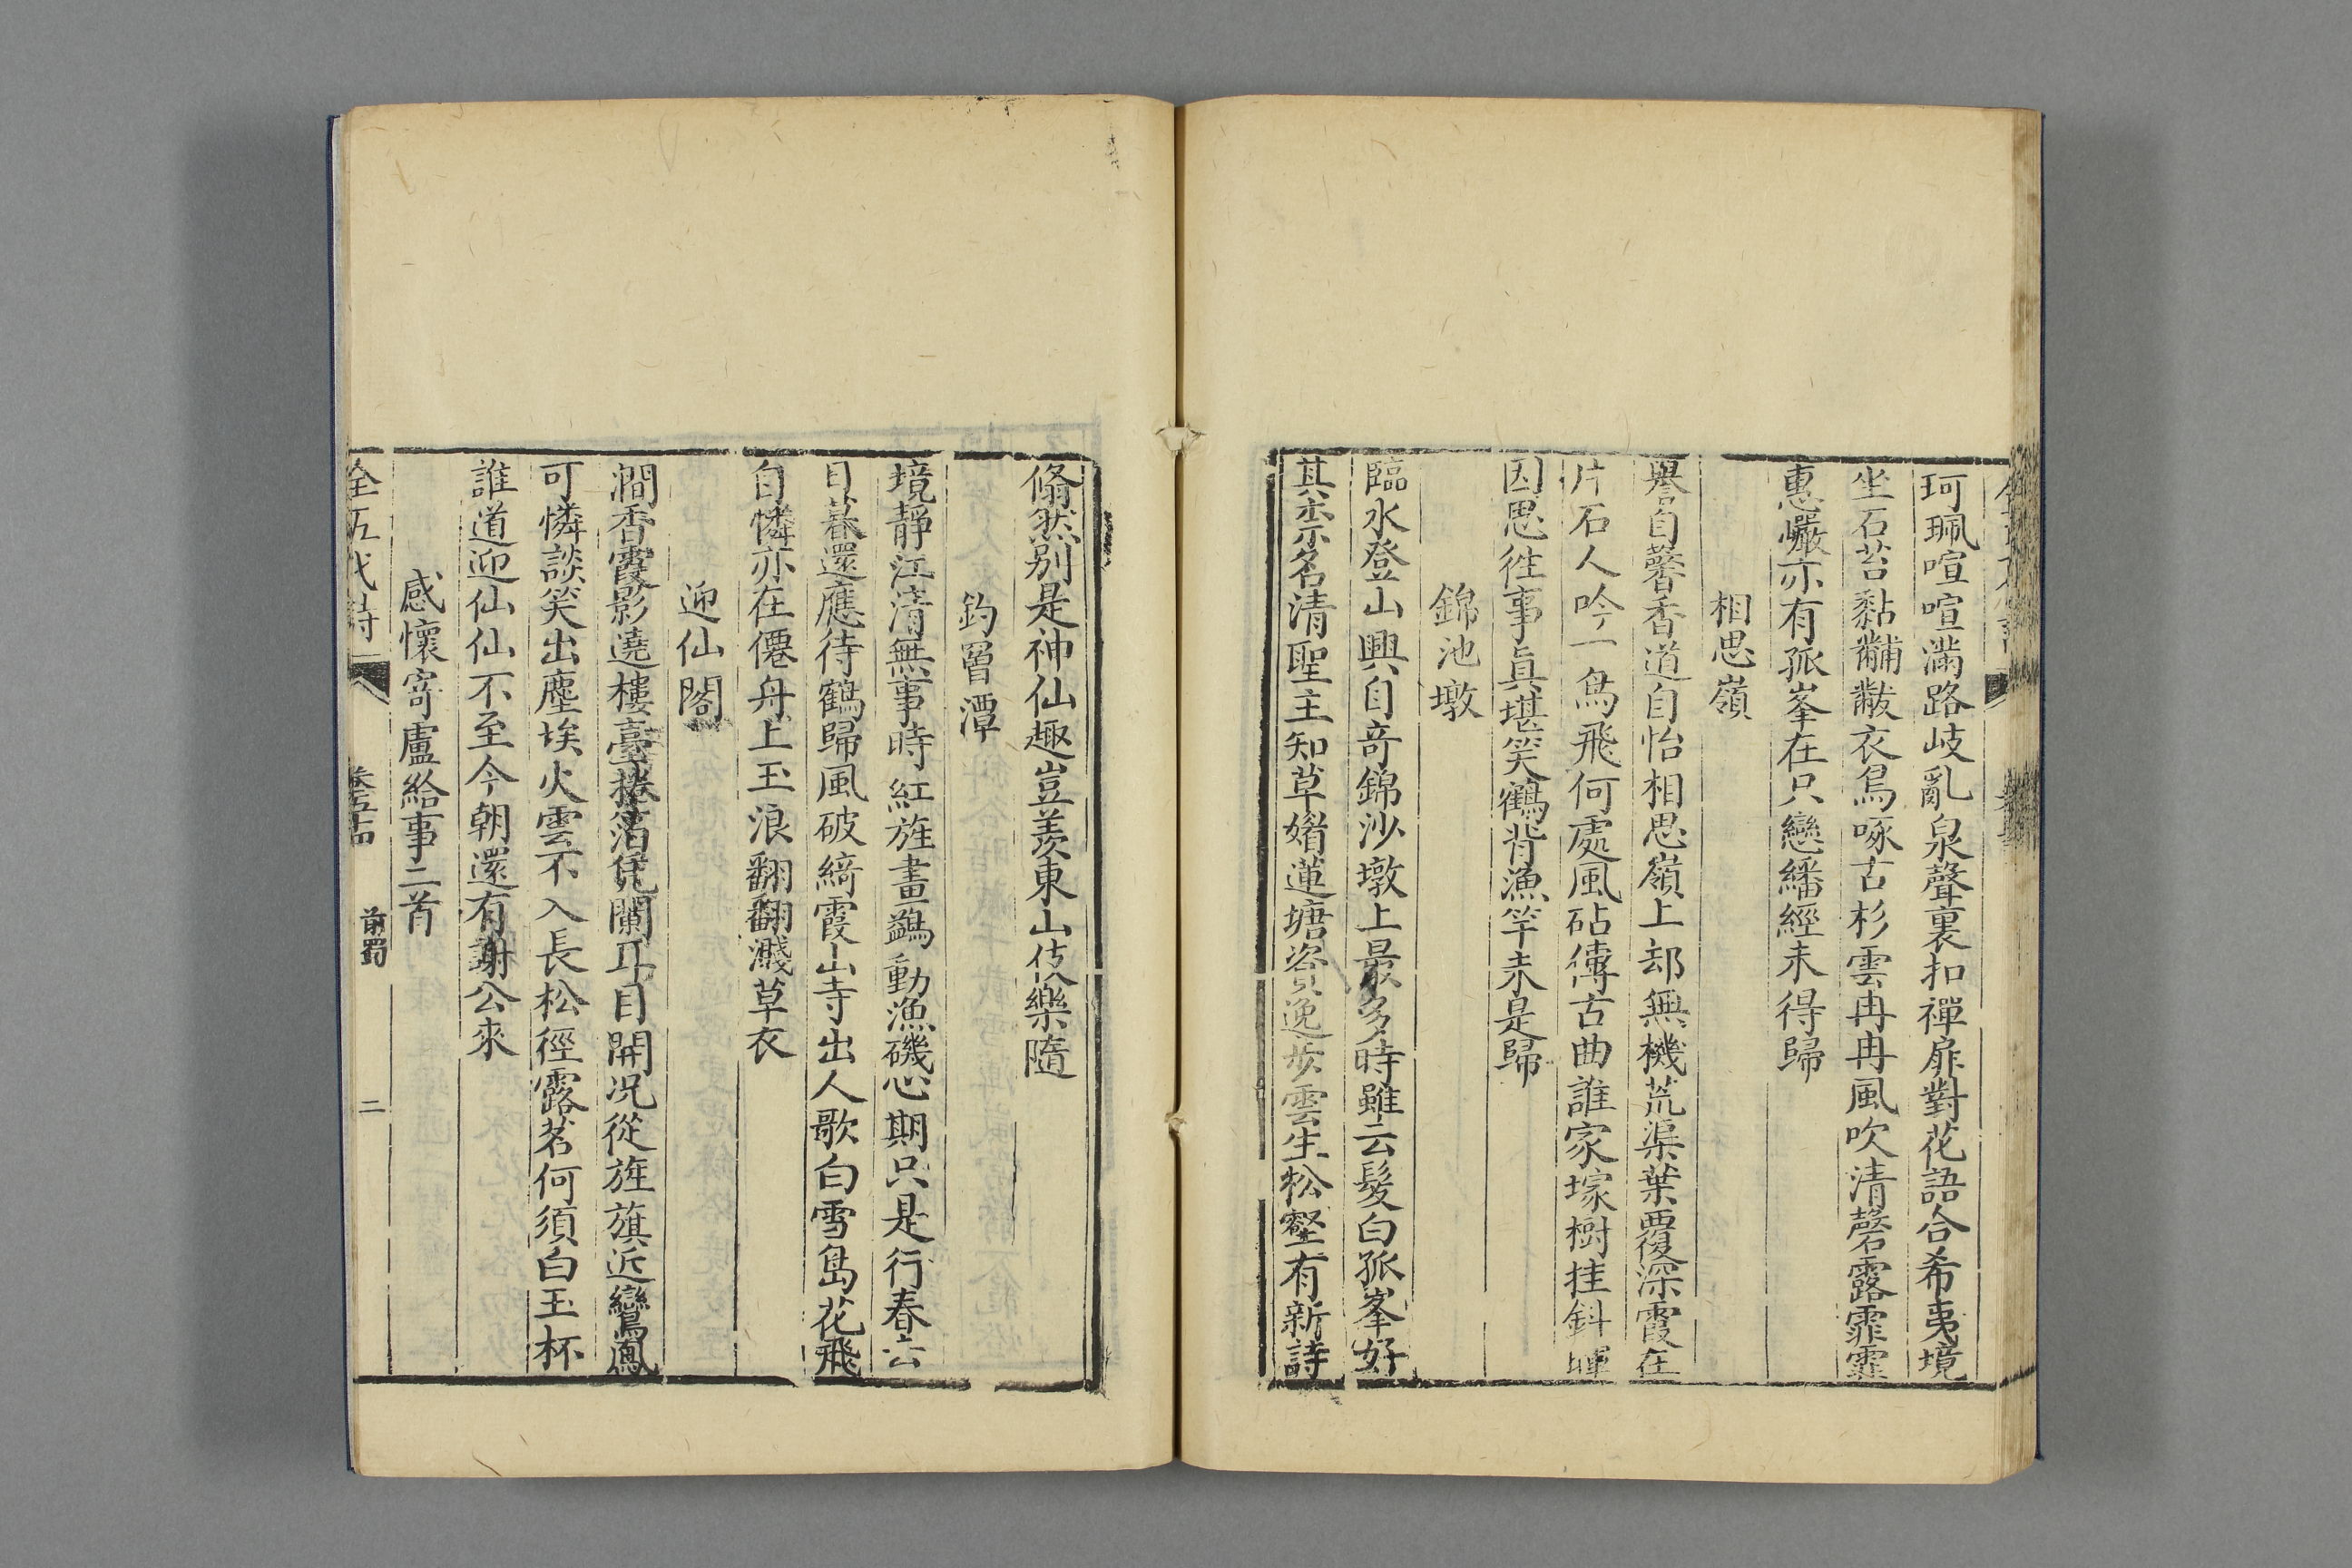 珂珮喧喧滿路岐亂泉聲裏扣禪扉對花語合希夷境
坐石苔黏黼黻衣鳥啄古杉雲冉冉風吹清磬露霏霏
惠巖亦有孤峯在只戀繙經未得歸
相思嶺
譽自馨香道自怡相思嶺上却無機荒渠葉覆深霞在
片石人吟一鳥飛何處風砧傳古曲誰家塚樹挂斜暉
因思徃事眞堪笑鶴背漁竿未是歸
錦池墩
臨水登山興自竒錦沙墩上最多時雖云髮白孤峯好
其柰名清聖主知草媚蓮塘資逸步雲生松壑有新詩
翛然别是神仙趣豈羨東山伎樂隨
釣罾潭
境靜江清無事時紅旌畫鷁動漁磯心期只是行春去
日暮還應待鶴歸風破綺霞山寺出人歌白雪島花飛
自憐亦在僊舟上玉浪翻翻濺草衣
迎仙閣
澗香霞影遶樓臺捲箔凭闌耳目開况從旌旗近鸞鳳
可憐談笑出塵埃火雲不入長松徑露茗何須白玉杯
誰道迎仙仙不至今朝還有謝公來
感懷寄盧給事二首
全五代詩 卷五古 前蜀 二